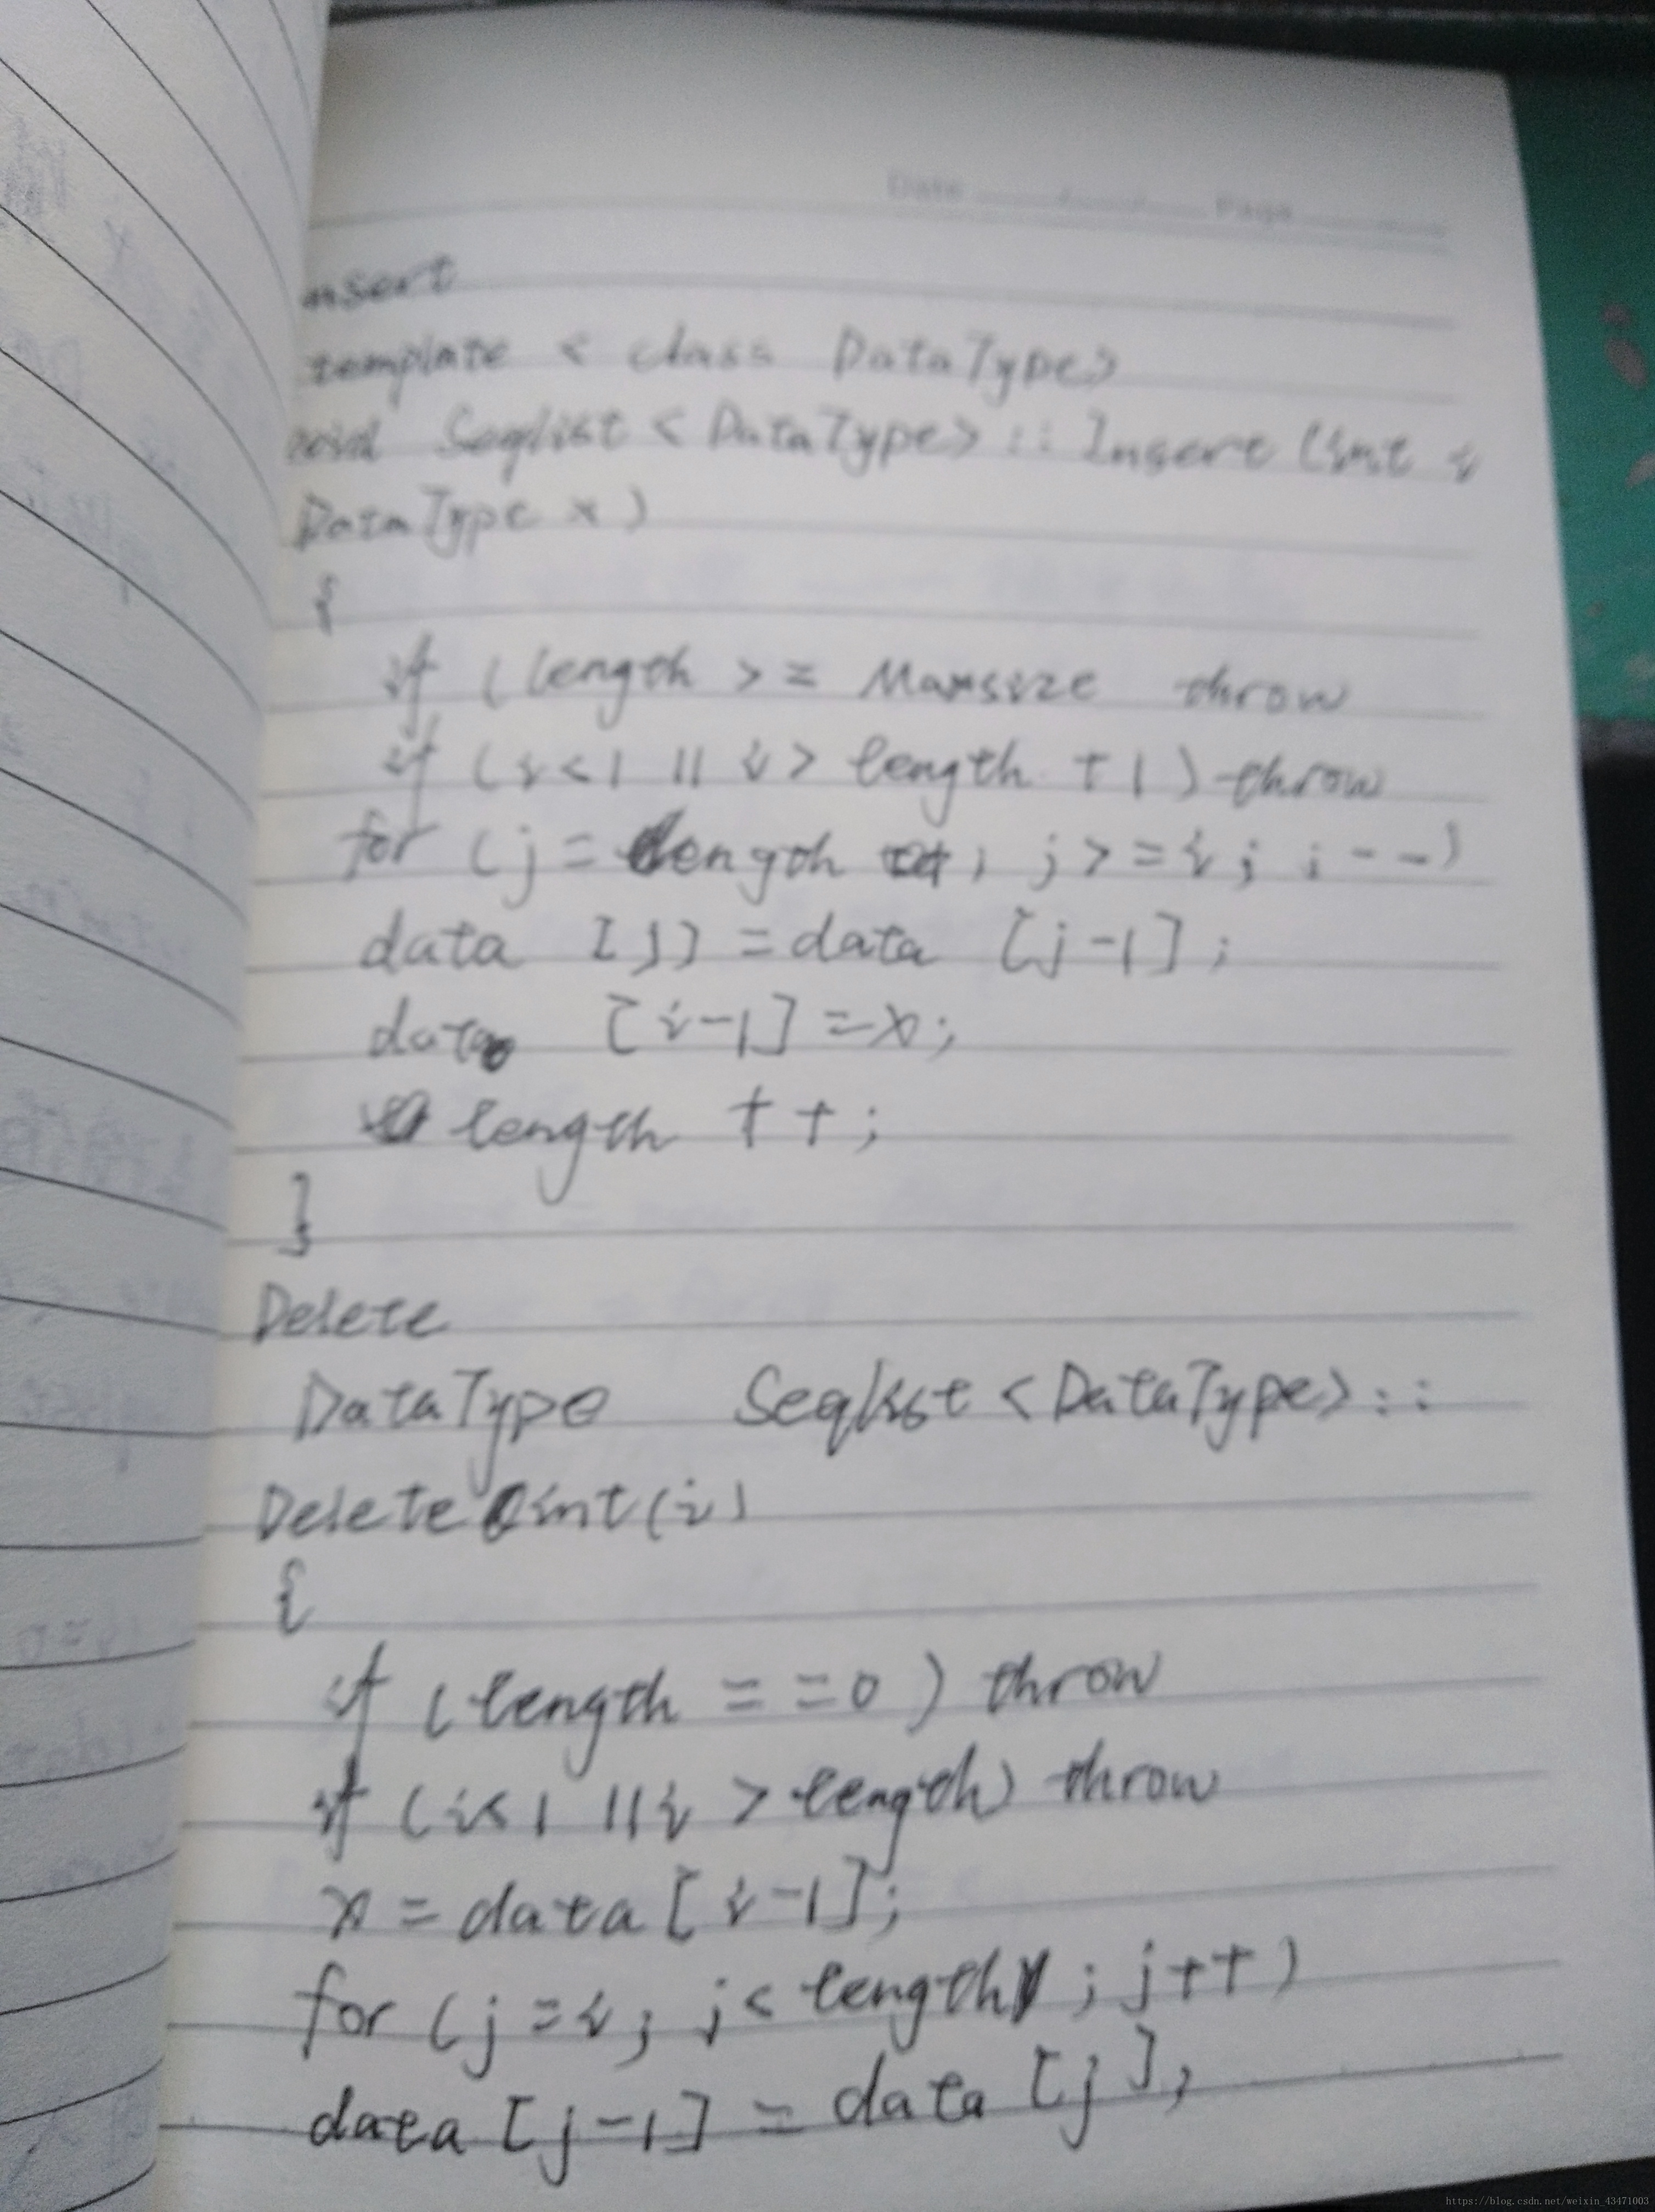 Date / / Page
nsert
template < class DataType>
void Seqlist < DataType> :: Insert (int i
DataType x )
{
if ( length > = Maxsize throw
if ( i < 1 || i > length + 1 ) throw
for ( j = length ; j > = i ; j - - )
data [ j ] = data [ j - 1 ] ;
data [ i - 1 ] = x ;
length + + ;
}
Delete
DataType Seqlist < DataType> ::
Delete int ( i )
{
if ( length = = 0 ) throw
if ( i < 1 || i > length ) throw
x = data [ i - 1 ] ;
for ( j = i ; j < length ; j + + )
data [ j - 1 ] = data [ j ] ;
https://blog.csdn.net/weixin_43471003